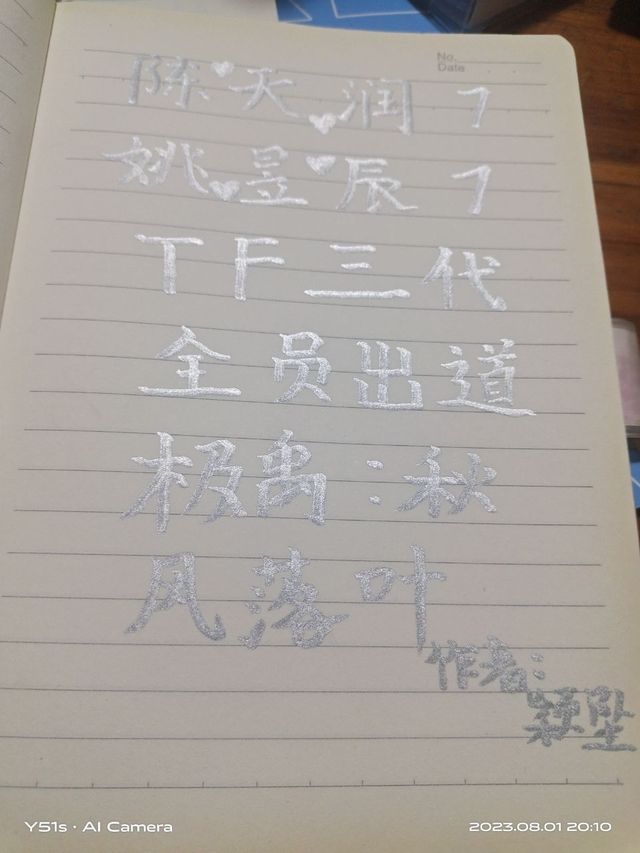 No.
Date
陈天润7
姚昱辰7
TF三代
全员出道
极禹:秋
风落叶
作者:
颖坠
Y51s · AI Camera
2023.08.01 20:10